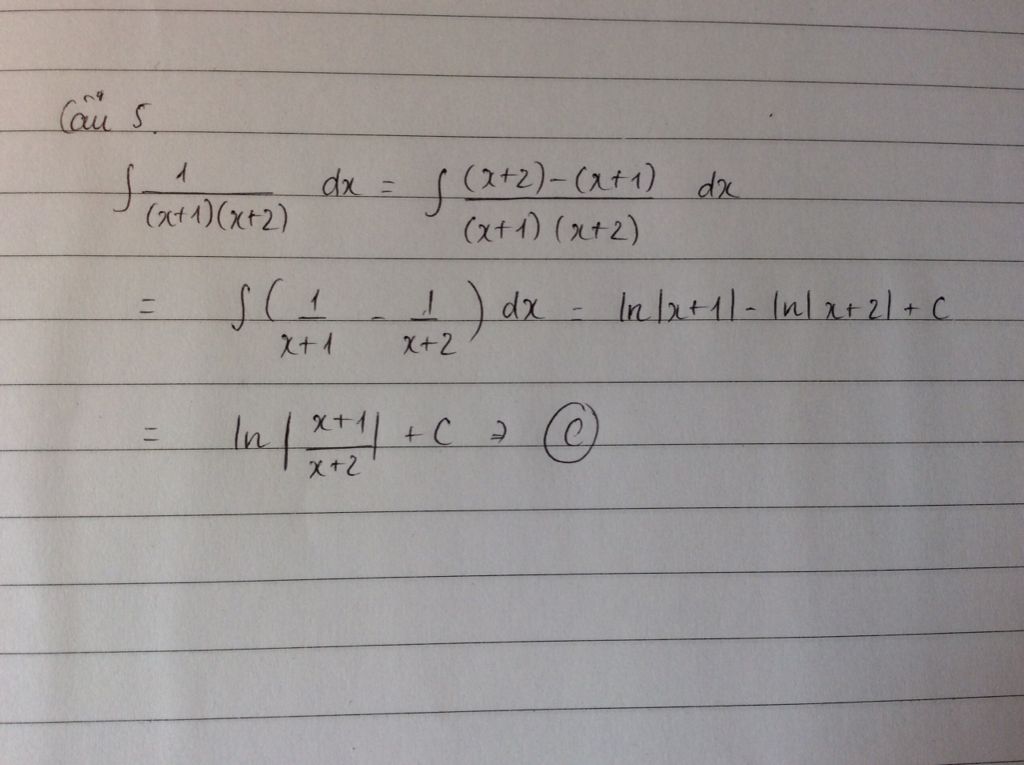 Câu 5.
∫ 1/((x+1)(x+2)) dx = ∫ ((x+2)-(x+1))/((x+1)(x+2)) dx
= ∫ (1/(x+1) - 1/(x+2)) dx = ln|x+1| - ln|x+2| + C
= ln|(x+1)/(x+2)| + C ⇒ Ⓒ